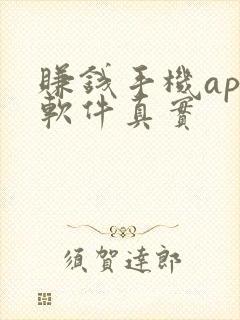 賺錢手機ap
軟件真實
須賀達郎